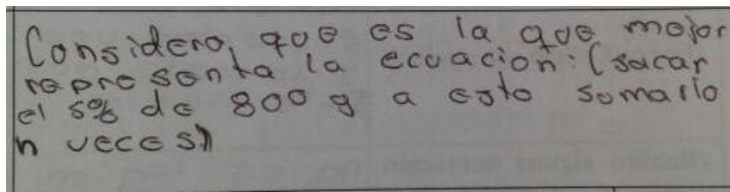 Considero que es la que mejor
representa la ecuación: (sacar
el 5% de 800 g a esto sumarlo
n veces)